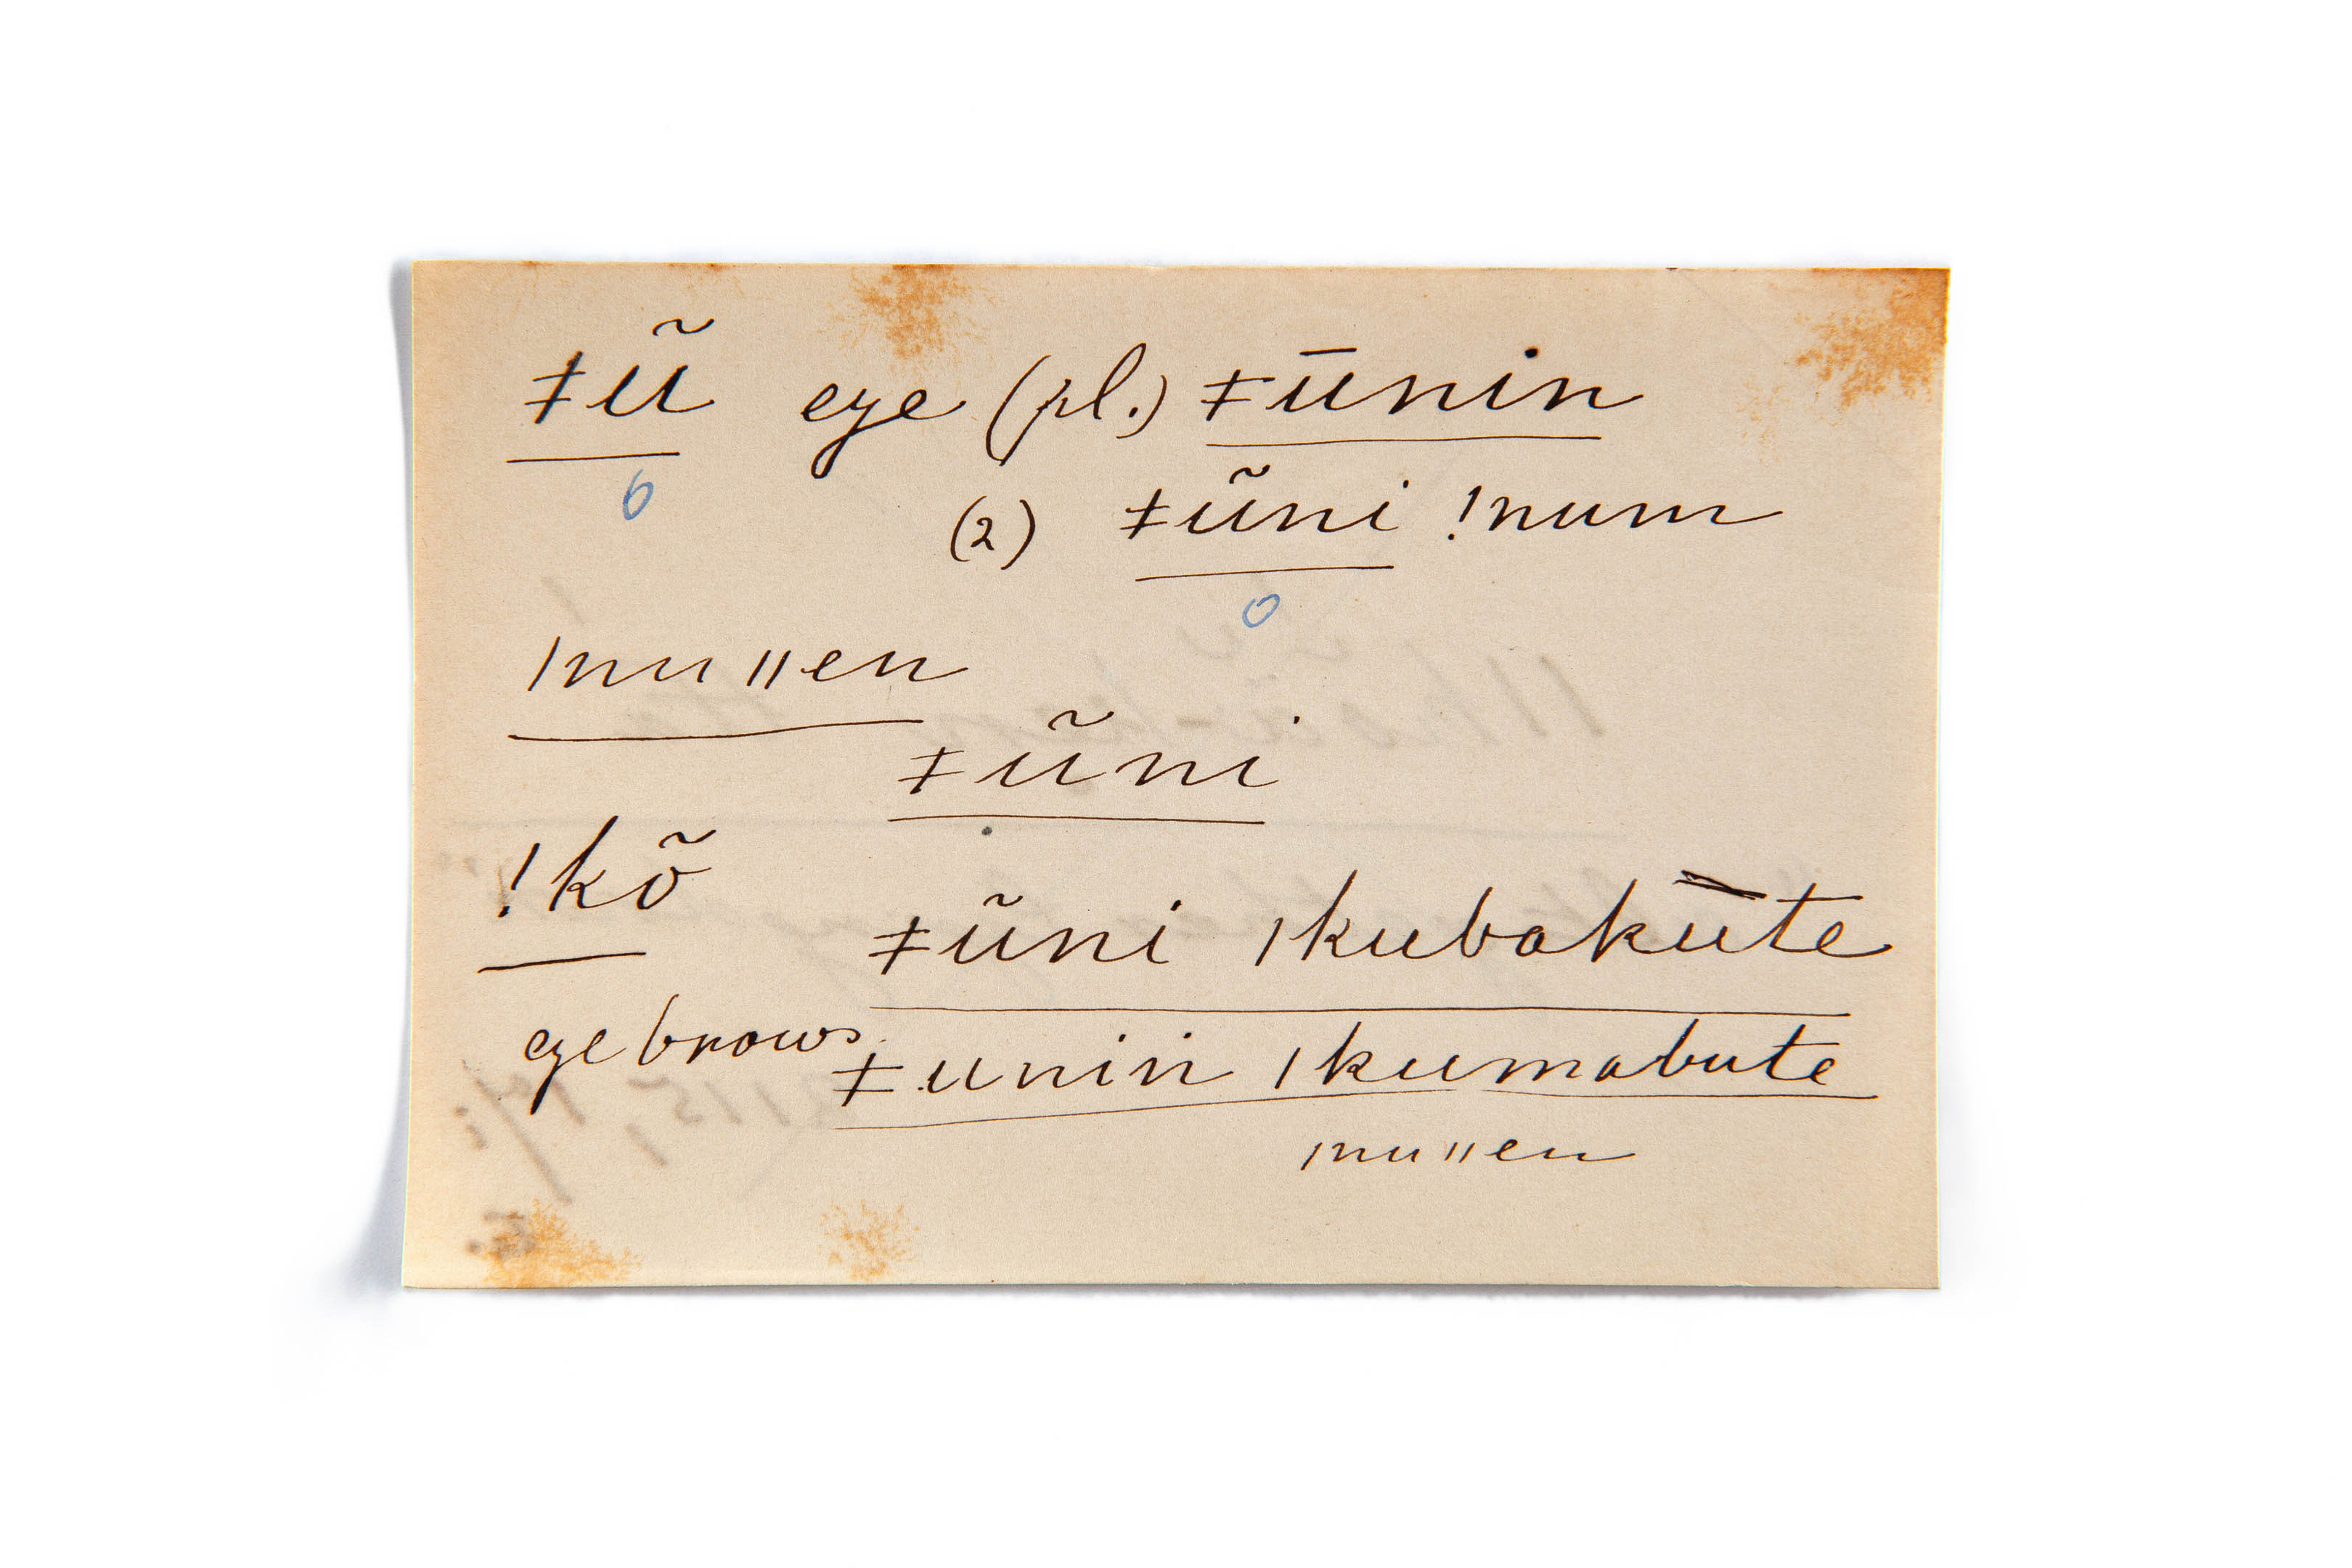 ǂũ eye (pl.) ǂūnin
6
(2) ǂũni !num
0
ǀnu ǁen
ǂũni
!kõ
ǂũni ǀkubakute
eyebrows ǂunin ǀkumabute
ǀnu ǁen